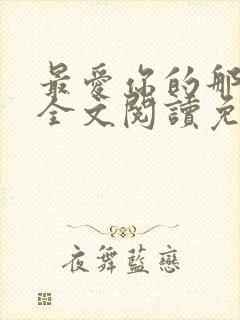 最愛你的那
全文閱讀免
夜舞藍戀